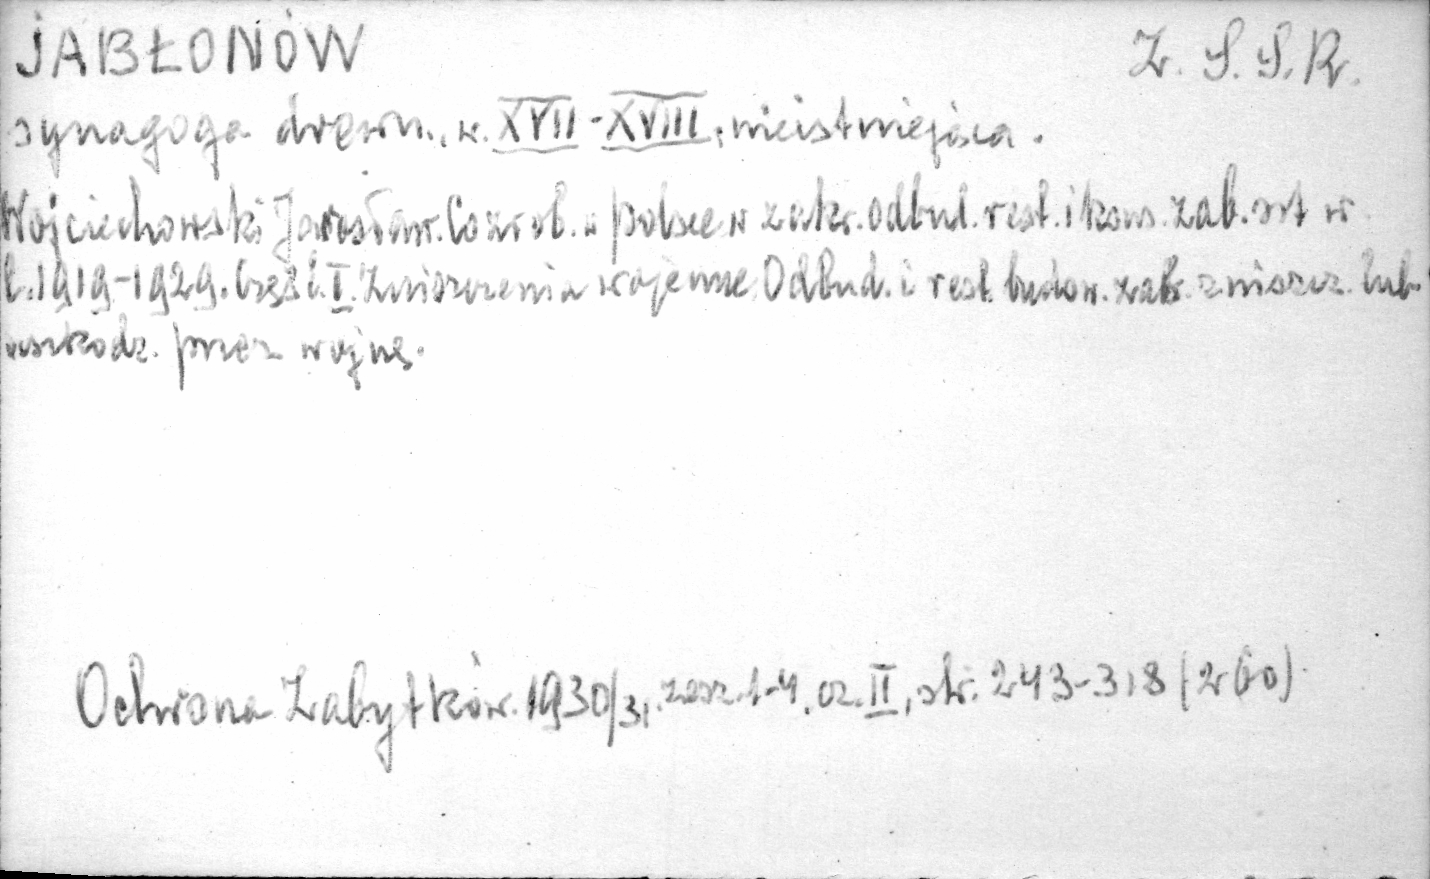 JABŁONÓW Z.S.S.R.
synagoga drewn., w. XVII-XVIII, nieistniejąca.
Wojciechowski Jarosław. Co zrob. w Polsce w zakr. odbud. rest. i kons. zab. szt w
l. 1919-1929. Część I. Zniszczenia wojenne. Odbud. i rest. budow. zab. zniszcz. lub
uszkodz. przez wojnę.
Ochrona Zabytków. 1930/31. zesz. 1-4, cz. II, str. 243-318 (260)